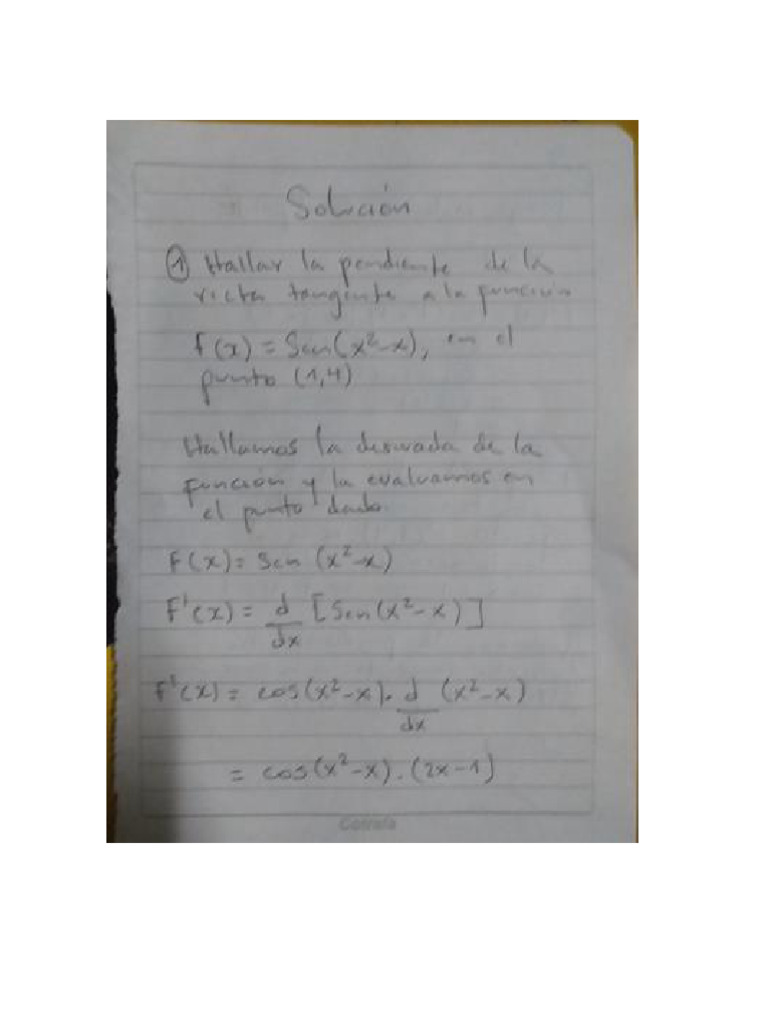 Solución
① Hallar la pendiente de la
recta tangente a la función
f(x) = Sen(x²-x), en el
punto (1,4)
Hallamos la derivada de la
función y la evaluamos en
el punto dado
F(x) = Sen (x²-x)
F'(x) = d/dx [Sen(x²-x)]
F'(x) = cos(x²-x). d/dx (x²-x)
= cos(x²-x).(2x-1)